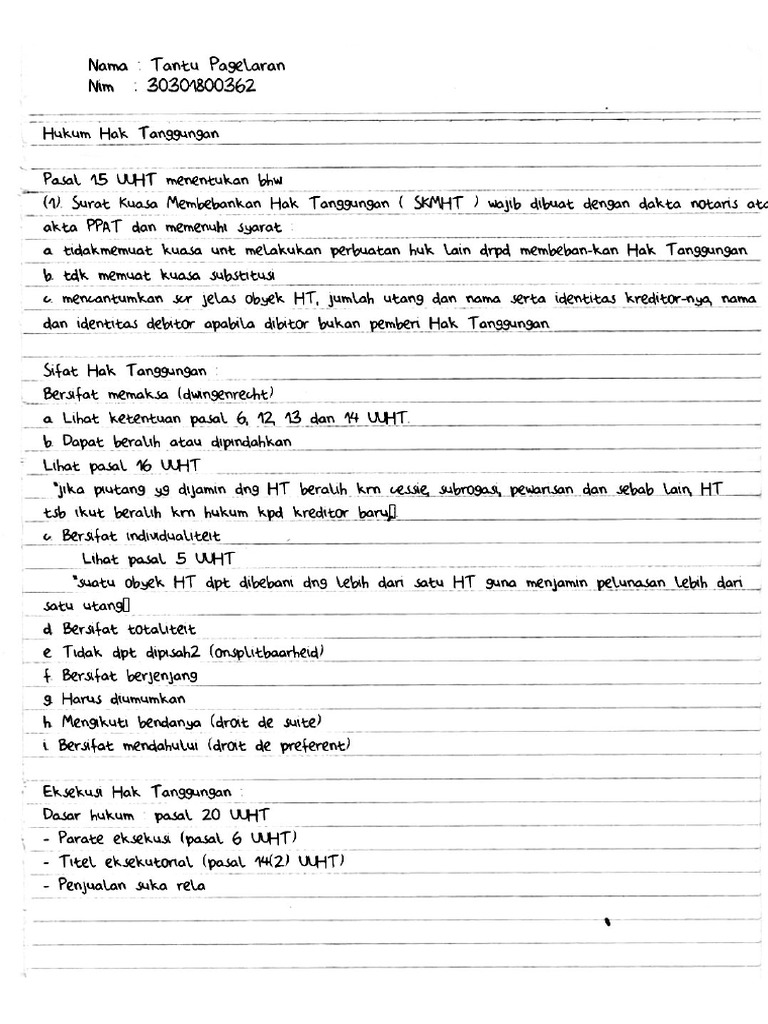 Nama : Tantu Pagelaran
Nim : 30301800362
Hukum Hak Tanggungan
Pasal 15 UUHT menentukan bhw
(1). Surat Kuasa Membebankan Hak Tanggungan ( SKMHT ) wajib dibuat dengan dakta notaris ata
akta PPAT dan memenuhi syarat :
a. tidakmemuat kuasa unt melakukan perbuatan huk lain drpd membeban-kan Hak Tanggungan
b. tdk memuat kuasa substitusi
c. mencantumkan scr jelas obyek HT, jumlah utang dan nama serta identitas kreditor-nya, nama
dan identitas debitor apabila dibitor bukan pemberi Hak Tanggungan
Sifat Hak Tanggungan :
Bersifat memaksa (dwingenrecht)
a. Lihat ketentuan pasal 6, 12, 13 dan 14 UUHT.
b. Dapat beralih atau dipindahkan
Lihat pasal 16 UUHT
"jika piutang yg dijamin dng HT beralih krn cessie, subrogasi, pewarisan dan sebab lain, HT
tsb ikut beralih krn hukum kpd kreditor baru,▯
c. Bersifat individualiteit
Lihat pasal 5 UUHT
"suatu obyek HT dpt dibebani dng lebih dari satu HT guna menjamin pelunasan lebih dari
satu utang▯
d. Bersifat totaliteit
e. Tidak dpt dipisah2 (onsplitbaarheid)
f. Bersifat berjenjang
g. Harus diumumkan
h. Mengikuti bendanya (droit de suite)
i. Bersifat mendahului (droit de preferent)
Eksekusi Hak Tanggungan :
Dasar hukum : pasal 20 UUHT
- Parate eksekusi (pasal 6 UUHT)
- Titel eksekutorial (pasal 14(2) UUHT)
- Penjualan suka rela